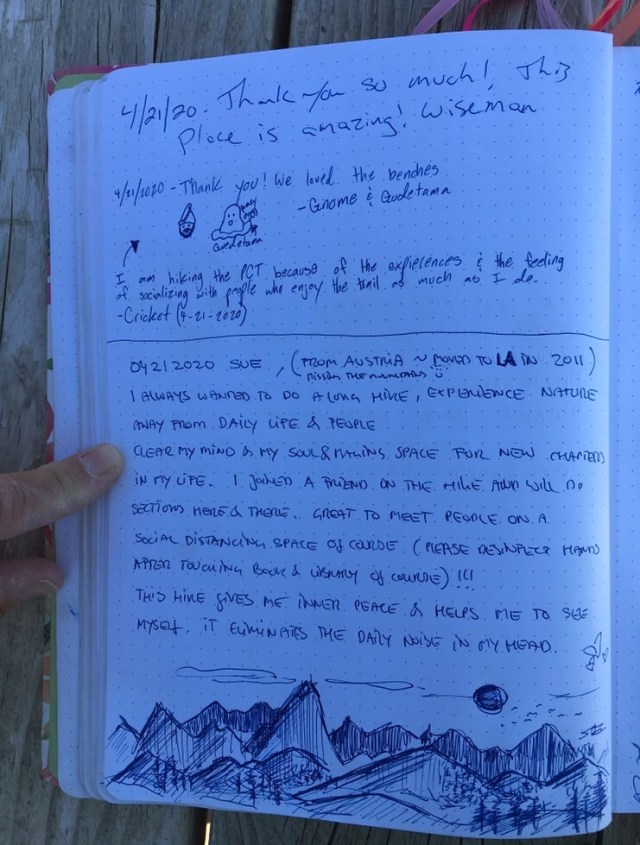 4/21/20. Thank you so much! This
place is amazing! Wiseman
4/21/2020 - Thank you! We loved the benches
- Gnome & Gudetama
Gudetama
I am hiking the PCT because of the expierences & the feeling
of socializing with people who enjoy the trail as much as I do.
- Cricket (4-21-2020)
04212020 SUE, (FROM AUSTRIA ~ MOVED TO LA IN 2011)
MISSING THE MOUNTAINS
I ALWAYS WANTED TO DO A LONG HIKE, EXPERIENCE NATURE
AWAY FROM DAILY LIFE & PEOPLE
CLEAR MY MIND & MY SOUL & MAKING SPACE FOR NEW CHAPTERS
IN MY LIFE. I JOINED A FRIEND ON THE HIKE AND WILL DO
SECTIONS HERE & THERE. GREAT TO MEET PEOPLE ON A
SOCIAL DISTANCING SPACE OF COURSE (PLEASE DESINFECT HANDS
AFTER TOUCHING BOOK & LIBRARY OF COURSE) !!!
THIS HIKE GIVES ME INNER PEACE & HELPS ME TO SEE
MYSELF. IT ELIMINATES THE DAILY NOISE IN MY HEAD.